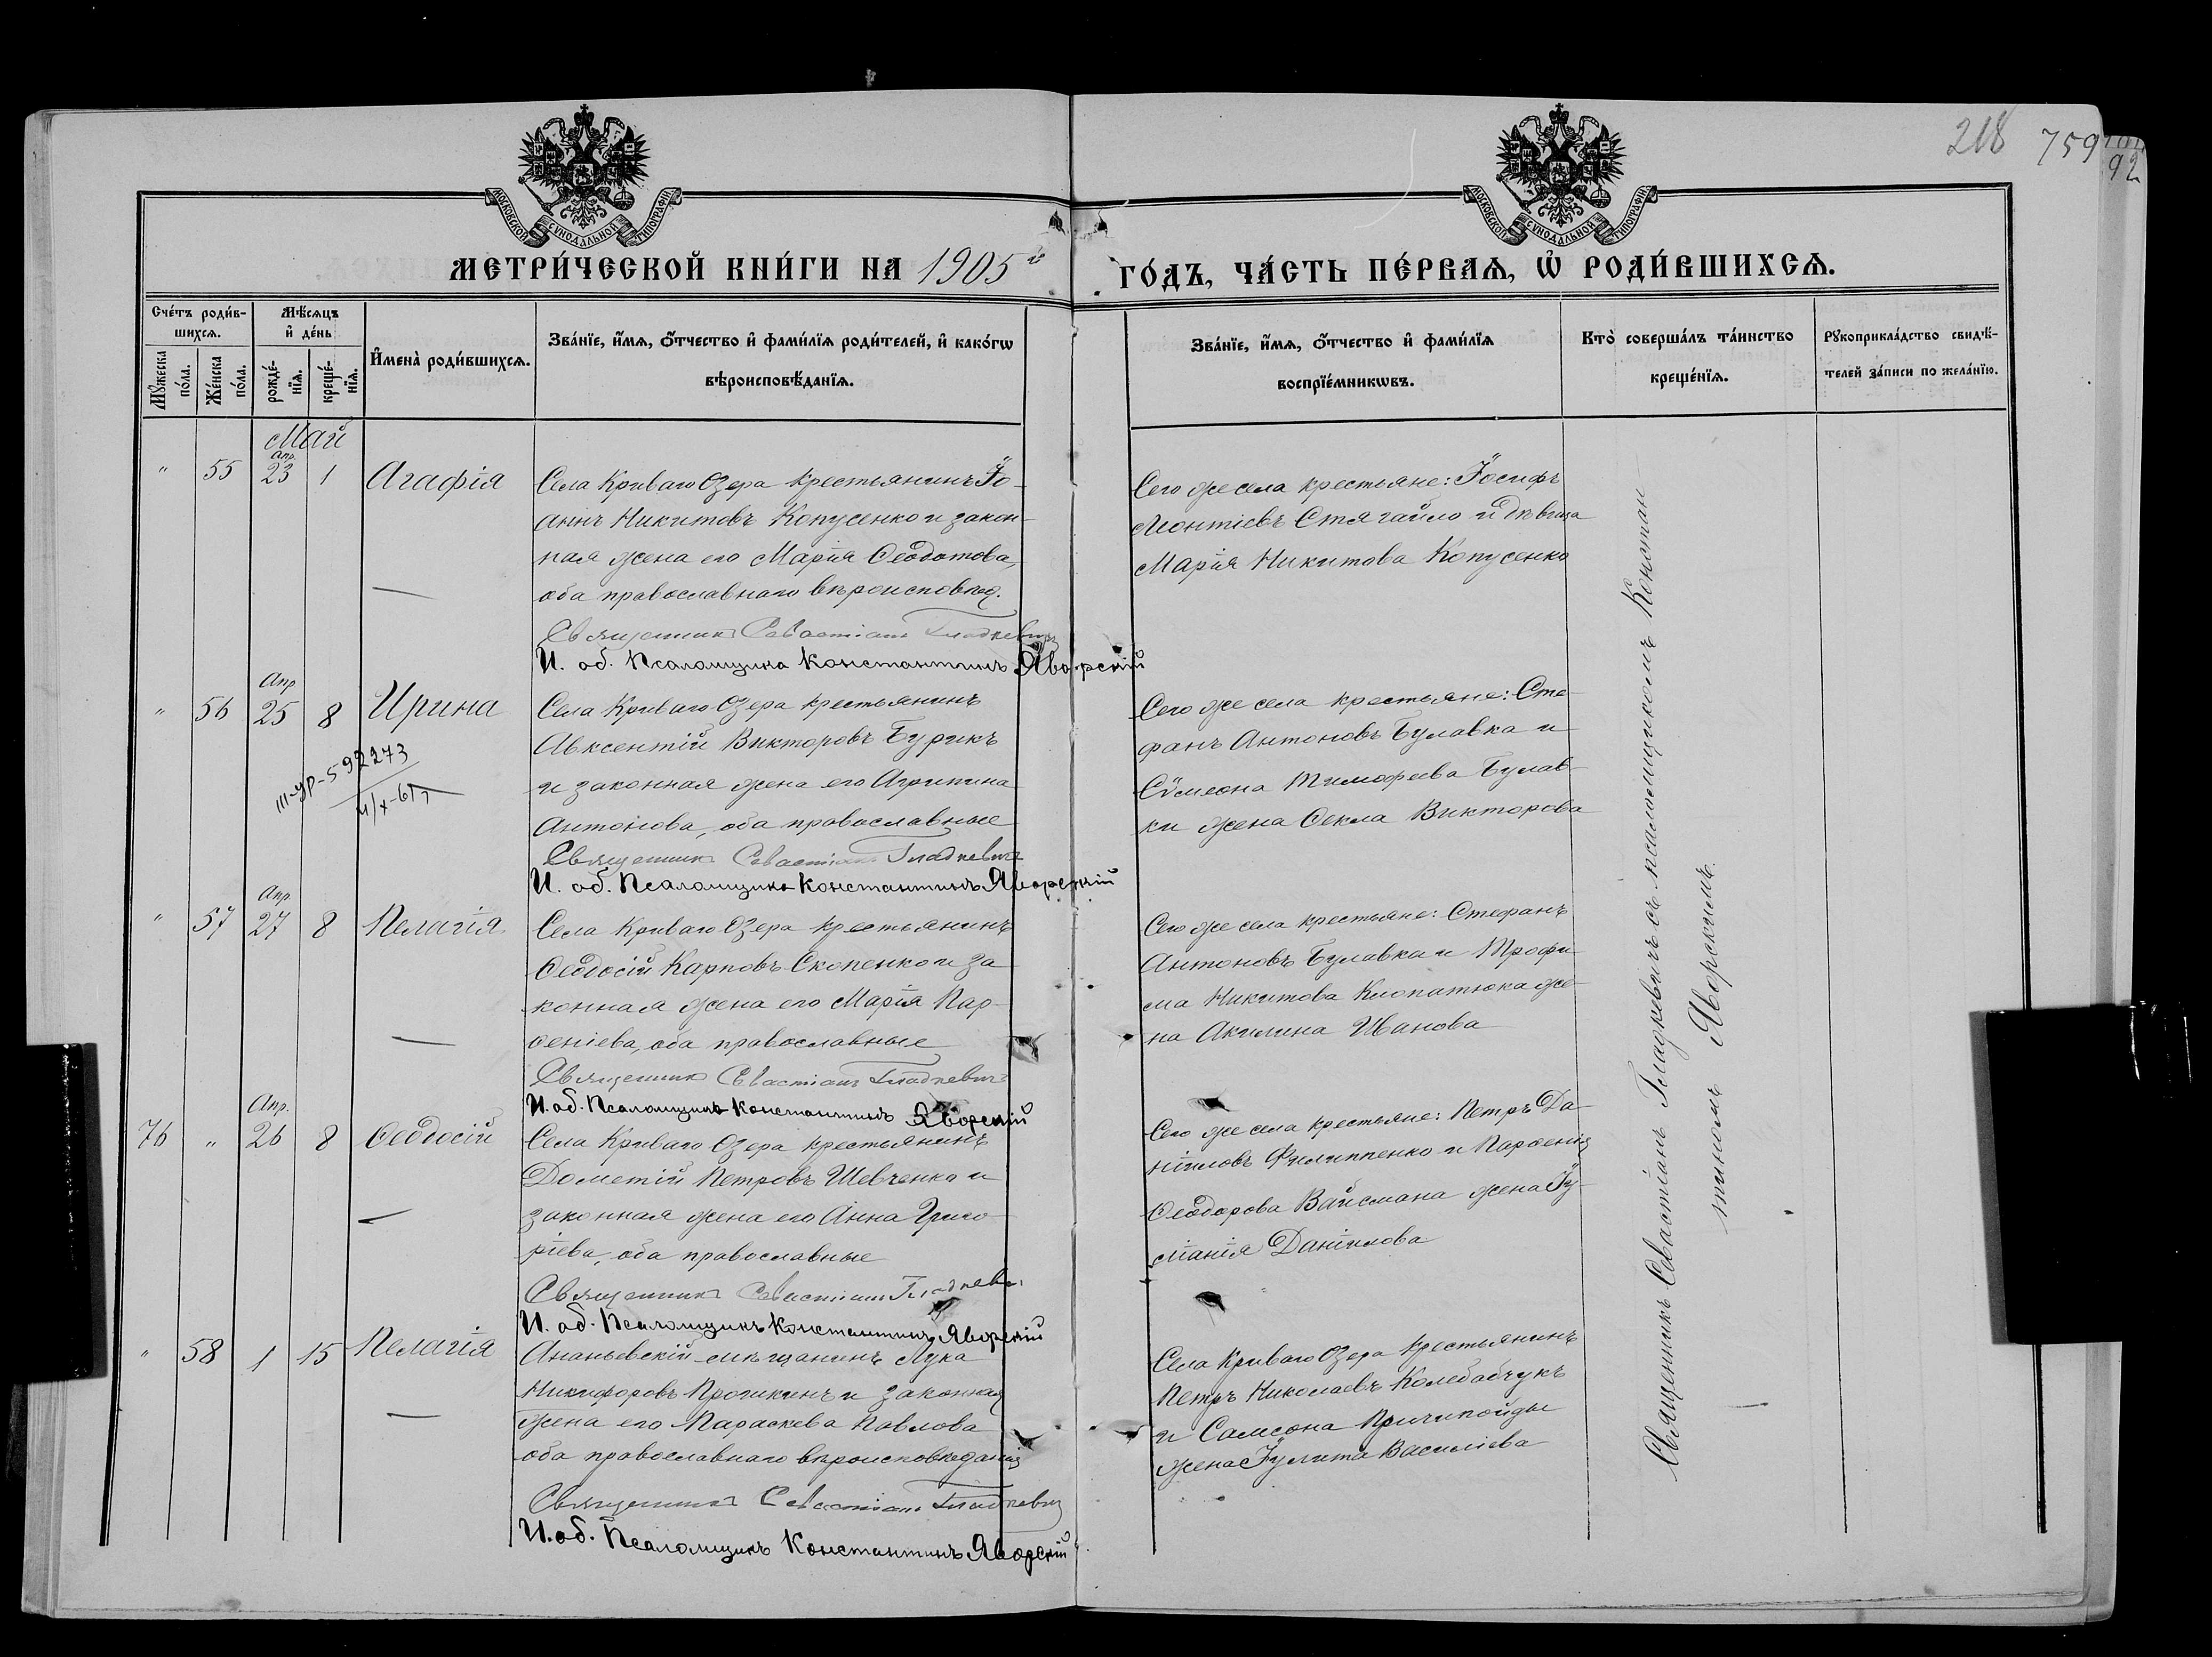 218 759
92
МОСКОВСКОЙ СѴНОДАЛЬНОЙ ТИПОГРАФІИ
МОСКОВСКОЙ СѴНОДАЛЬНОЙ ТИПОГРАФІИ
МЕТРИ́ЧЕСКОЙ КНИ́ГИ НА 1905й ГО́ДЪ, ЧА́СТЬ ПЕ́РВАѦ, Ѽ РОДИ́ВШИХСѦ.
Сче́тъ роди́в-
шихсѧ.
Мꙋжеска по́ла.
Же́нска по́ла.
Мѣ́сѧцъ
и҆ де́нь
рожде́-
нїѧ.
креще́-
нїѧ.
И҆мена̀ роди́вшихсѧ.
Зва́нїе, и҆́мѧ, о҆́тчество и҆ фами́лїѧ роди́телей, и҆ како́гѡ
вѣроисповѣ́данїѧ.
Зва́нїе, и҆́мѧ, о҆́тчество и҆ фами́лїѧ
воспрїе́мникѡвъ.
Кто̀ соверша́лъ та́инство
креще́нїѧ.
Рꙋкоприкла́дство свидѣ́-
телей за́писи по жела́нїю.
Май
" 55 Апр. 23 1 Агафія
Села Криваго Озера крестьянинъ Іо-
аннъ Никитовъ Копусенко и закон-
ная жена его Марія Ѳеодотова,
оба православнаго вѣроисповѣд.
Священникъ Севастіанъ Гладкевичъ
И. об. Псаломщика Константинъ Яворскій
Сего же села крестьяне: Іосифъ
Леонтіевъ Стягайло и дѣвица
Марія Никитова Копусенко
" 56 Апр 25 8 Ирина
III-УР-592273
4/X-61г
Села Криваго Озера крестьянинъ
Авксентій Викторовъ Бурикъ
и законная жена его Агрипина
Антонова, оба православные
Священникъ Севастіанъ Гладкевичъ
И. об. Псаломщика Константинъ Яворскій
Сего же села крестьяне: Сте-
фанъ Антоновъ Булавка и
Сѵмеона Тимофеева Булав-
ки жена Ѳекла Викторова
" 57 Апр. 27 8 Пелагія
Села Криваго Озера крестьянинъ
Ѳеодосій Карповъ Скопенко и за-
конная жена его Марія Пар-
ѳеніева, оба православные
Священникъ Севастіанъ Гладкевичъ
И. об. Псаломщика Константинъ Яворскій
Сего же села крестьяне: Стефанъ
Антоновъ Булавка и Трофи-
ма Никитова Клопатюка же-
на Акилина Иванова
76 " Апр. 26 8 Ѳеодосій
Села Криваго Озера крестьянинъ
Дометій Петровъ Шевченко и
законная жена его Анна Григо-
ріева, оба православные
Священникъ Севастіанъ Гладкевъ
И. об. Псаломщикъ Константинъ Яворскій
Сего же села крестьяне: Петръ Да-
ніиловъ Филиппенко и Парѳенія
Ѳеодорова Вайсмана жена Іу-
ліанія Даніилова
" 58 1 15 Пелагія
Ананьевскій мѣщанинъ Лука
Никифоровъ и законная
жена его Параскева Павлова
оба православнаго вѣроисповѣданія
Священникъ Севастіанъ Гладкевичъ
И. об. Псаломщикъ Константинъ Яворскій
Села Криваго Озера крестьянинъ
Петръ Николаевъ Колебабчукъ
и Самсона Причипойды
жена Іулита Василіева
Священникъ Севастіанъ Гладкевичъ съ псаломщикомъ Констан-
тиномъ Яворскимъ.